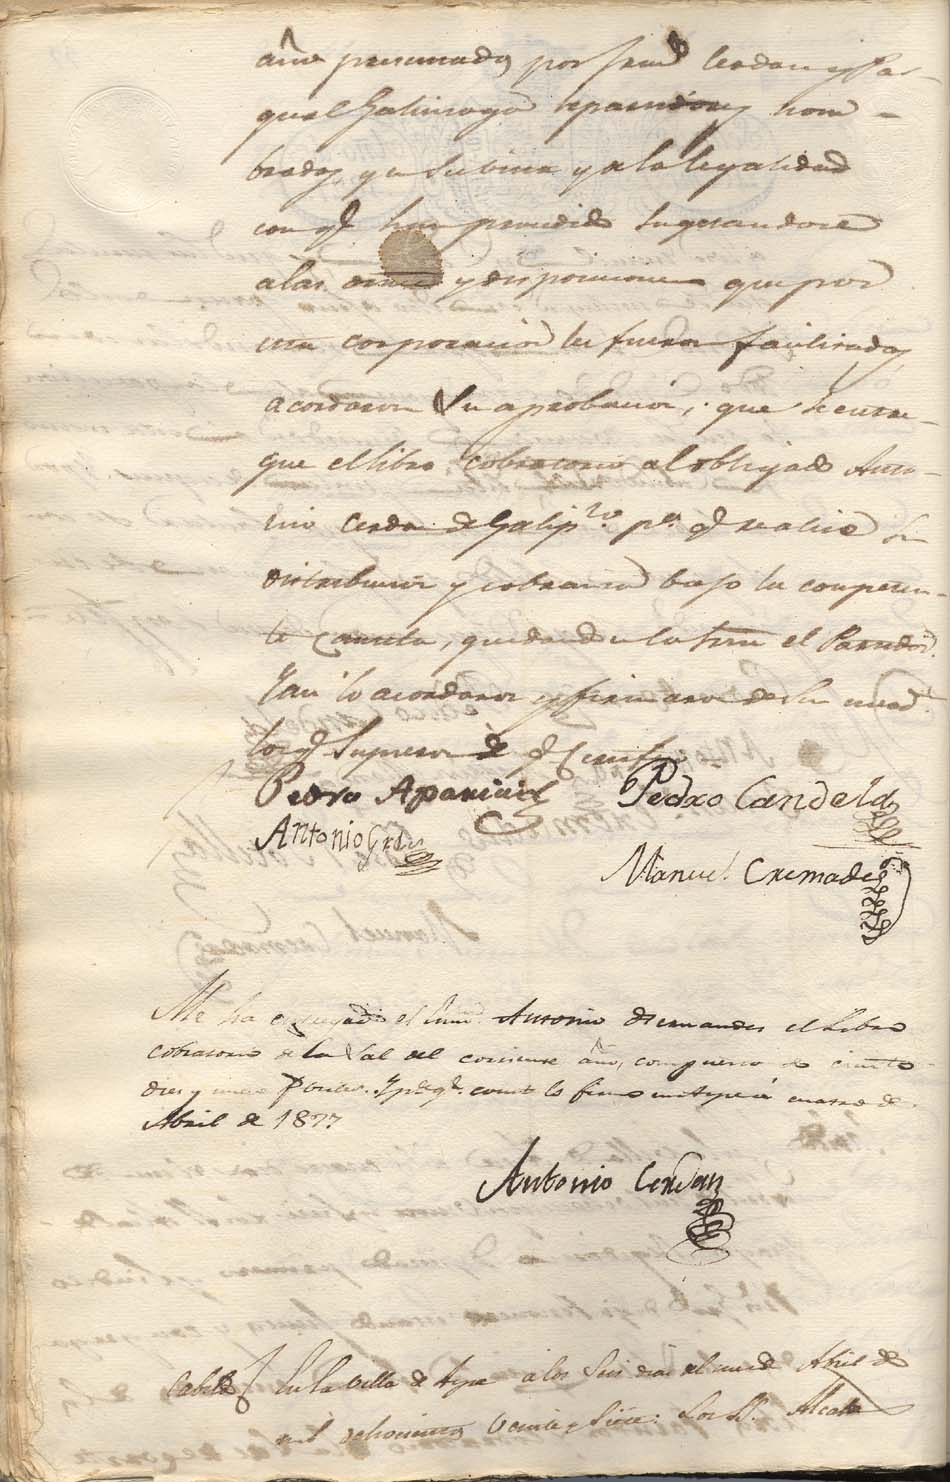 año presentado por Fran.co Cerdan y Pas-
qual Galinsoga repartidores nom-
brados, y en su vista y a la legalidad
con q.e han procedido sugetandose
a las ordenes y disposiciones que por
esta corporacion les fueron facilitadas,
acordaron su aprobacion, que se entre-
gue el libro cobratorio al obligado Anto-
nio Cerdan de Galip.zo p.a q.e realice su
distribucion y cobranza bajo la competen-
te cautela, quedando
Y asi lo acordaron y firmaron de su mrd
los q.e supieron de q.e Certifico
Pedro Aparicio
Pedro Candela
Antonio Cerdan
Manuel Cremades
Me ha entregado el Antonio Hernandez el Libro
cobratorio de la Sal del corriente año, compuesto de ciento
dies y nueve . Y p.a q.e conste lo firmo en Aspe á cuatro de
Abril de 1827
Antonio Cerdan
Cabildo En la villa de Aspe a los seis dias del mes de Abril de
mil ochocientos veinte y siete: Los SS. Alcalde